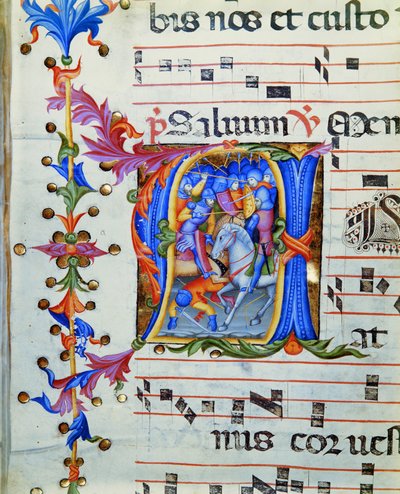 bis nos et custo
Saluum
A at
nus cor uest